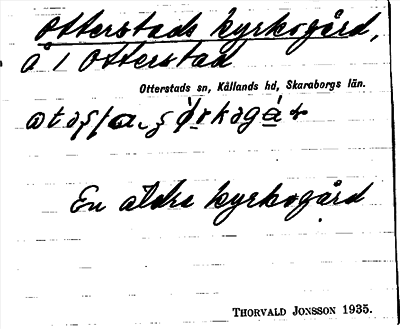 Otterstads kyrkogård,
Å 1 Otterstad
Otterstads sn, Kållands hd, Skaraborgs län.
En äldre kyrkogård
THORVALD JONSSON 1935.